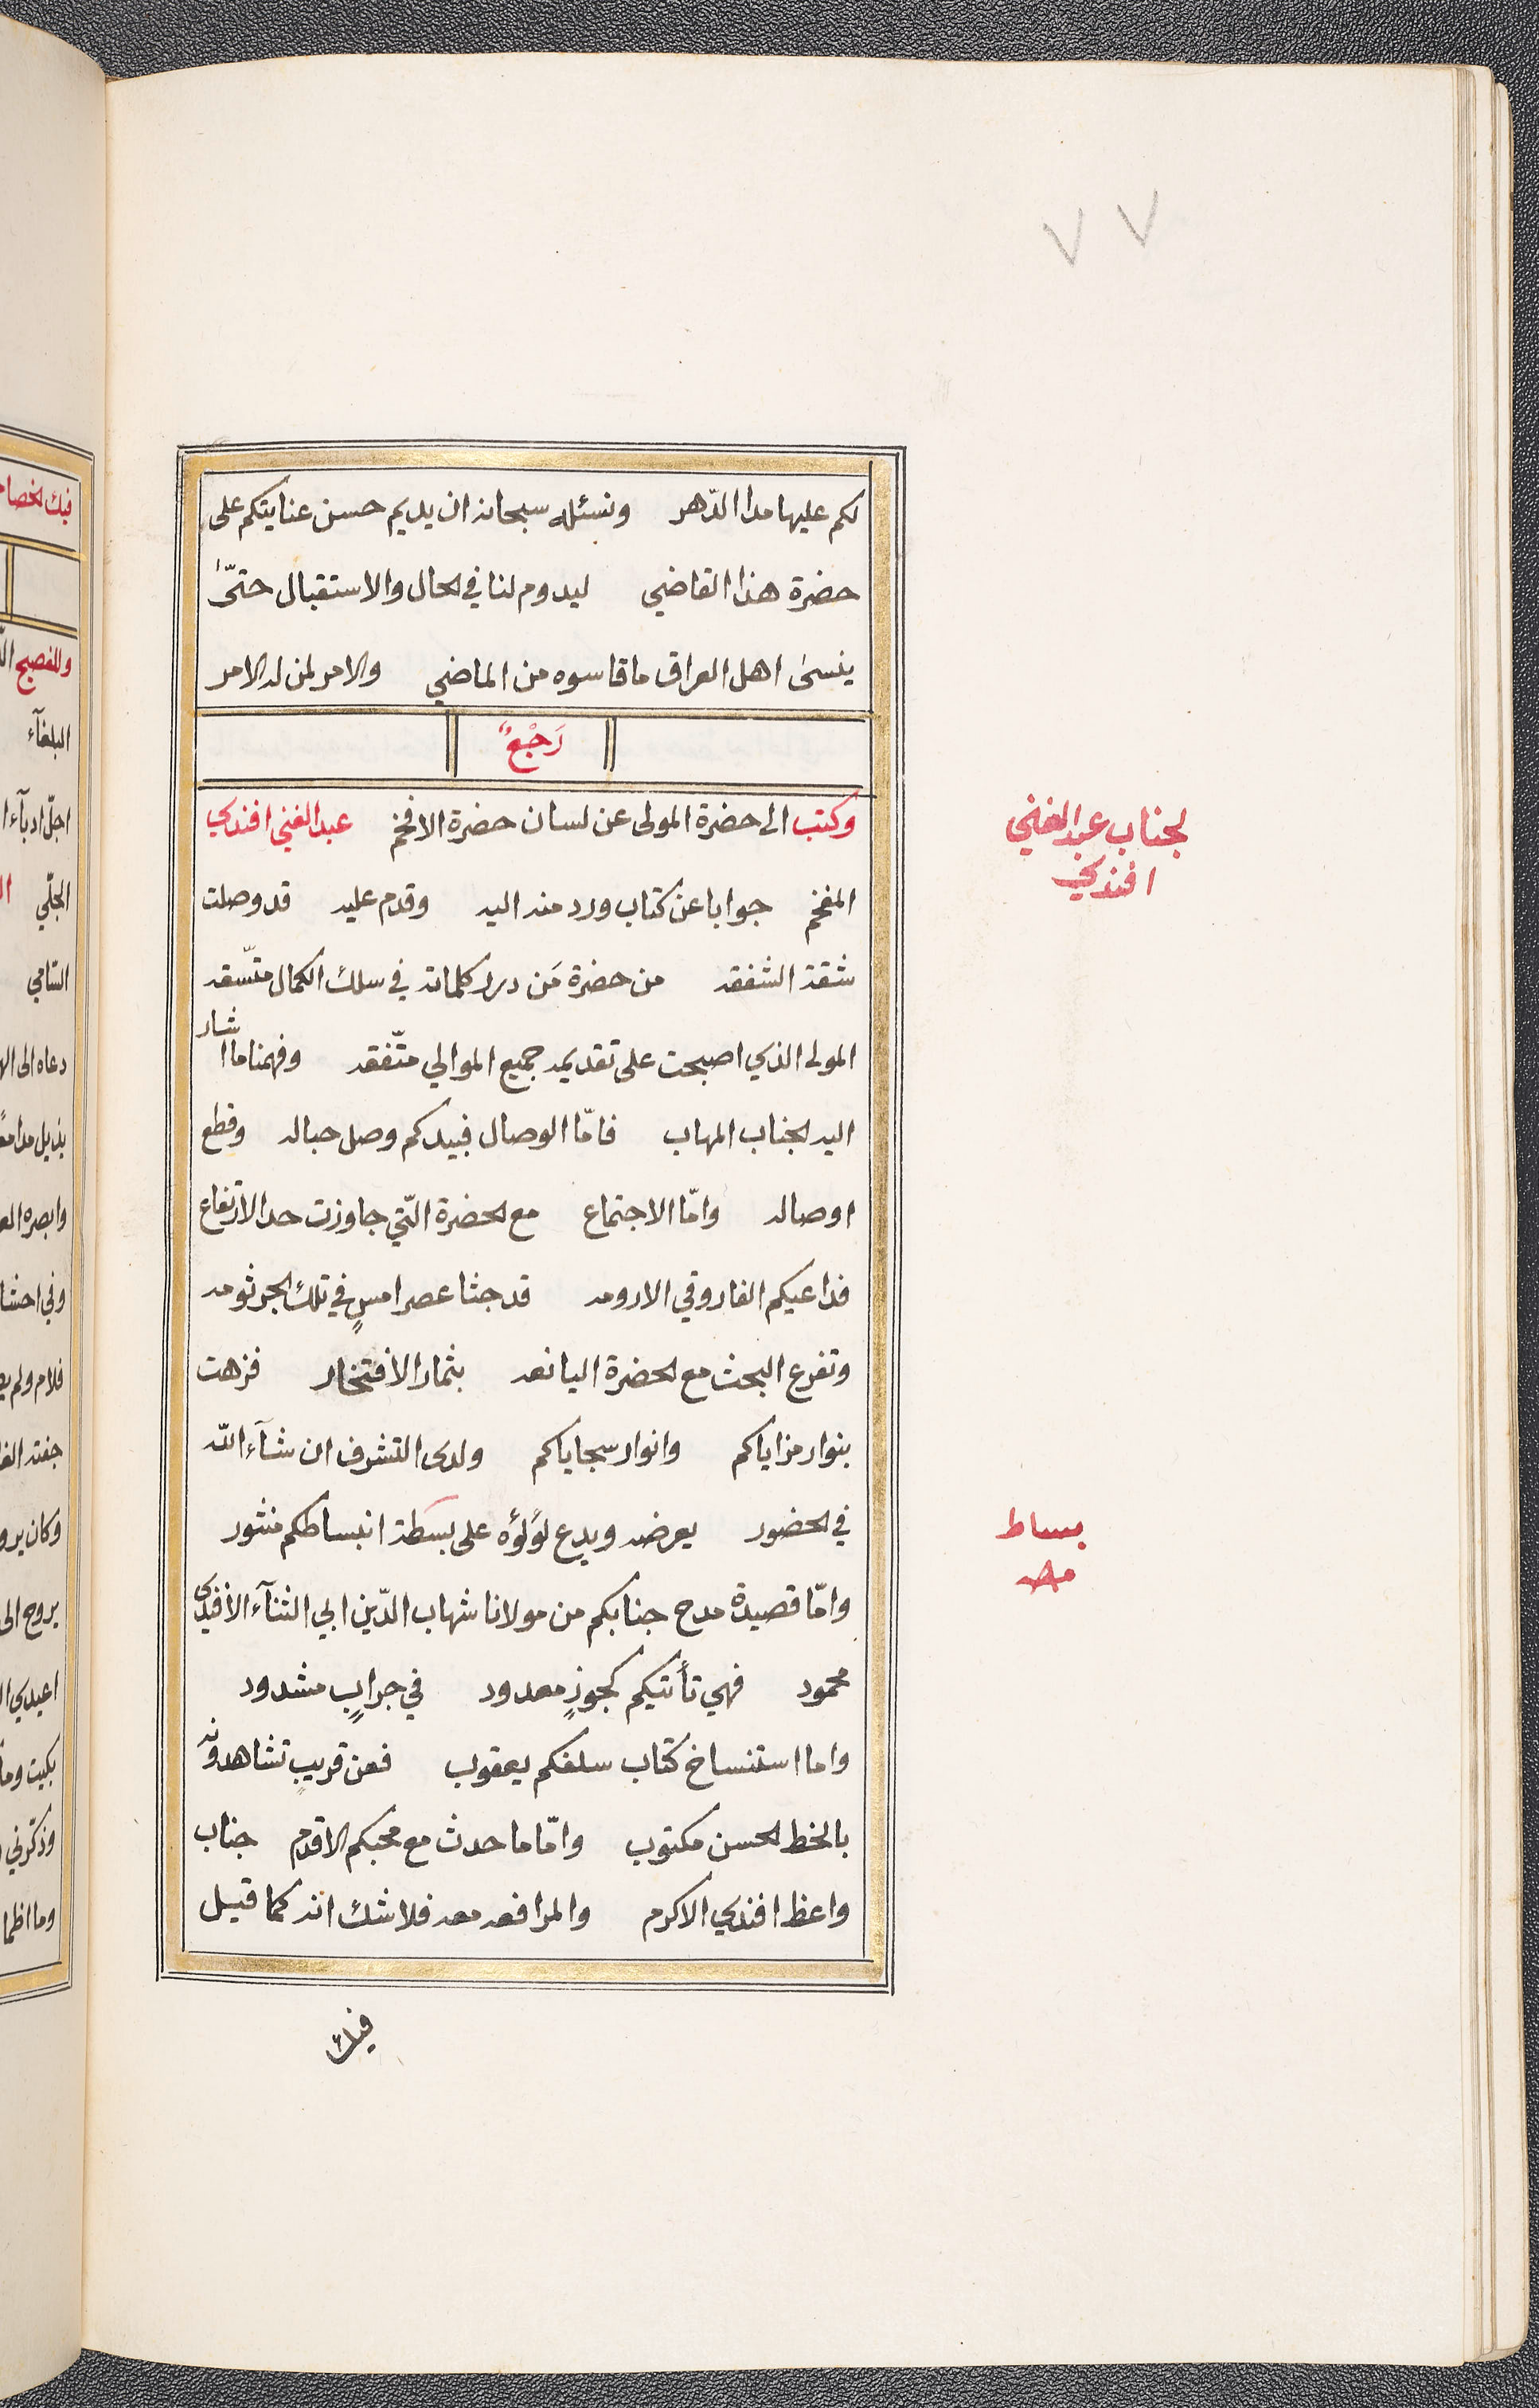 ٧٧
لكم عليها مدا الدّهر ونسئله سبحانه ان يديم حسن عنايتكم على
حضرة هذا القاضي ليدوم لنا في الحال والاستقبال حتّى
ينسى اهل العراق ماقاسوه من الماضي والامر لمن له الامر
رَجْعٌ
وكتب الى حضرة المولى عن لسان حضرة الافخم عبد الغني افندي
لجناب عبد الغني
افندي
المفخم جوابا عن كتاب ورد منه اليه وقدم عليه قد وصلت
شقة الشفقه من حضرة مَن درر كلماته في سلك الكمال متّسقه
المولى الذي اصبحت على تقديمه جميع الموالي متّفقه وفهمنا ما اشار
اليه الجناب المهاب فامّا الوصال فبيدكم وصل حباله وقطع
اوصاله وامّا الاجتماع مع الحضرة الّتي جاوزت حد الارتفاع
فداعيكم الفاروقي الارومه قد جثا عصر امسٍ في تلك الجرثومه
وتفرع البحث مع الحضرة اليانعه بثمار الافتخار فزهت
بنوار مزاياكم وانوار سجاياكم ولدى التشرف ان شآء الله
في الحضور يعرضه ويدع لؤلؤه على بسطة انبساطكم منثور
بساط
وامّا قصيدة مدح جنابكم من مولانا شهاب الدّين ابي الثنآء الأفندي
محمود فهي تأتيكم كجوزٍ معدود في جرابٍ مشدود
واما استنساخ كتاب سلفكم يعقوب فعن قريبٍ تشاهدونه
بالخط الحسن مكتوب وامّا ما حدث مع محبكم الاقدم جناب
واعظ افندي الاكرم والمرافعه معه فلا شك انه كما قيل
فيك